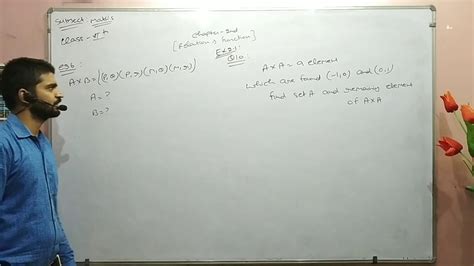 Subject: maths
class - 11th
chapter - 2nd
[Relation & function]
Ex 2.1
Q10
Ex 6:
A×B = {(P,Q)(P,R)(M,Q)(M,R)}
A = ?
B = ?
A×A = 9 element
which are found (-1,0) and (0,1)
find set A and remaining element
of A×A